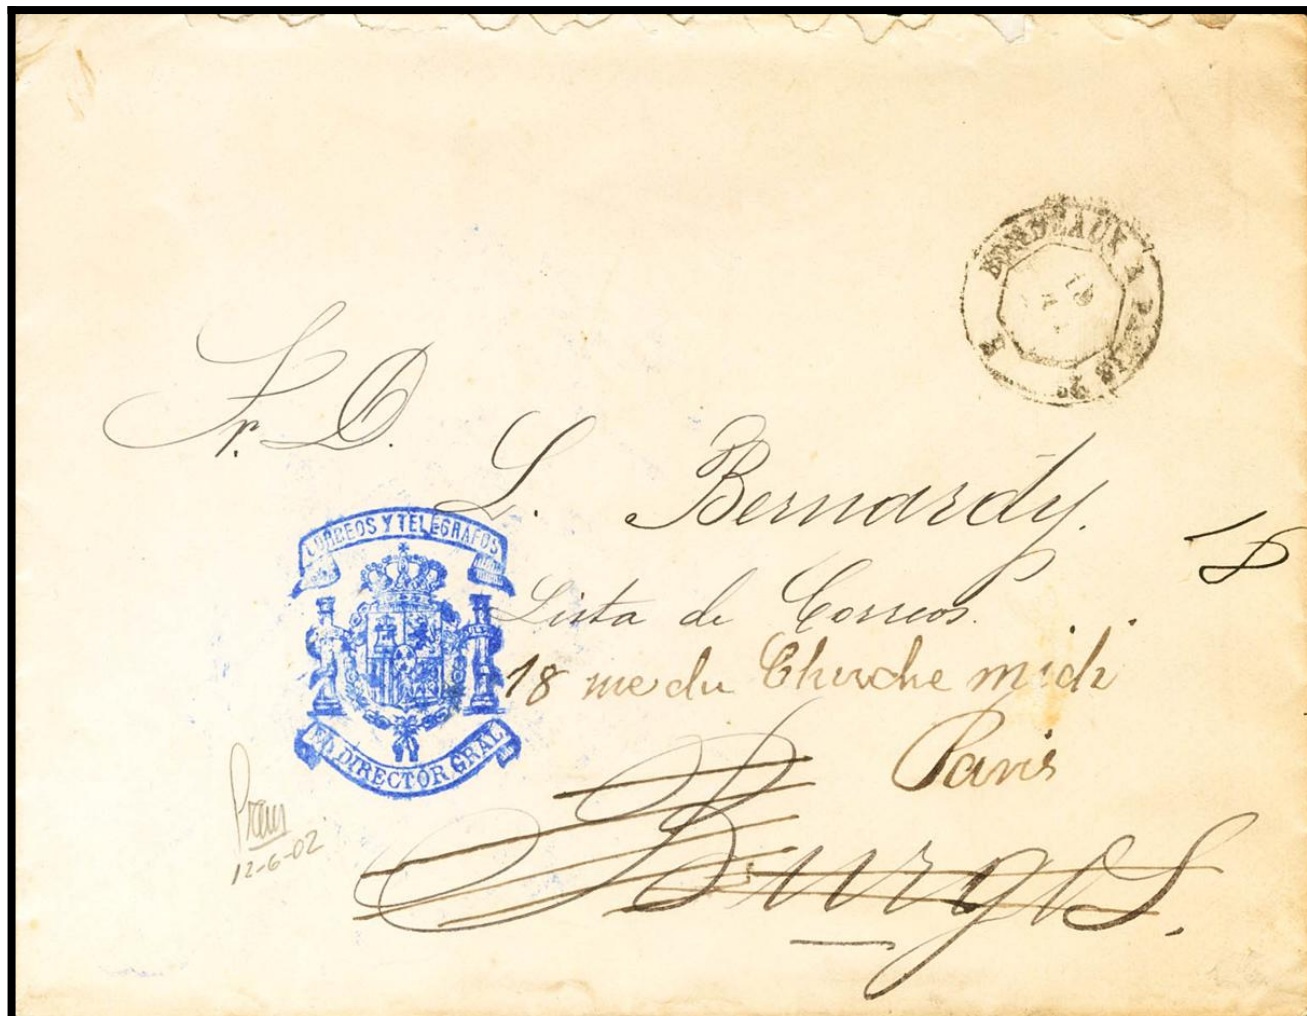 BORDEAUX A PARIS
Sr. D.
L. Bernardy.
Lista de Correos.
18 rue du Cherche midi
Paris
Burgos.
CORREOS Y TELEGRAFOS
EL DIRECTOR GRAL
12-6-02